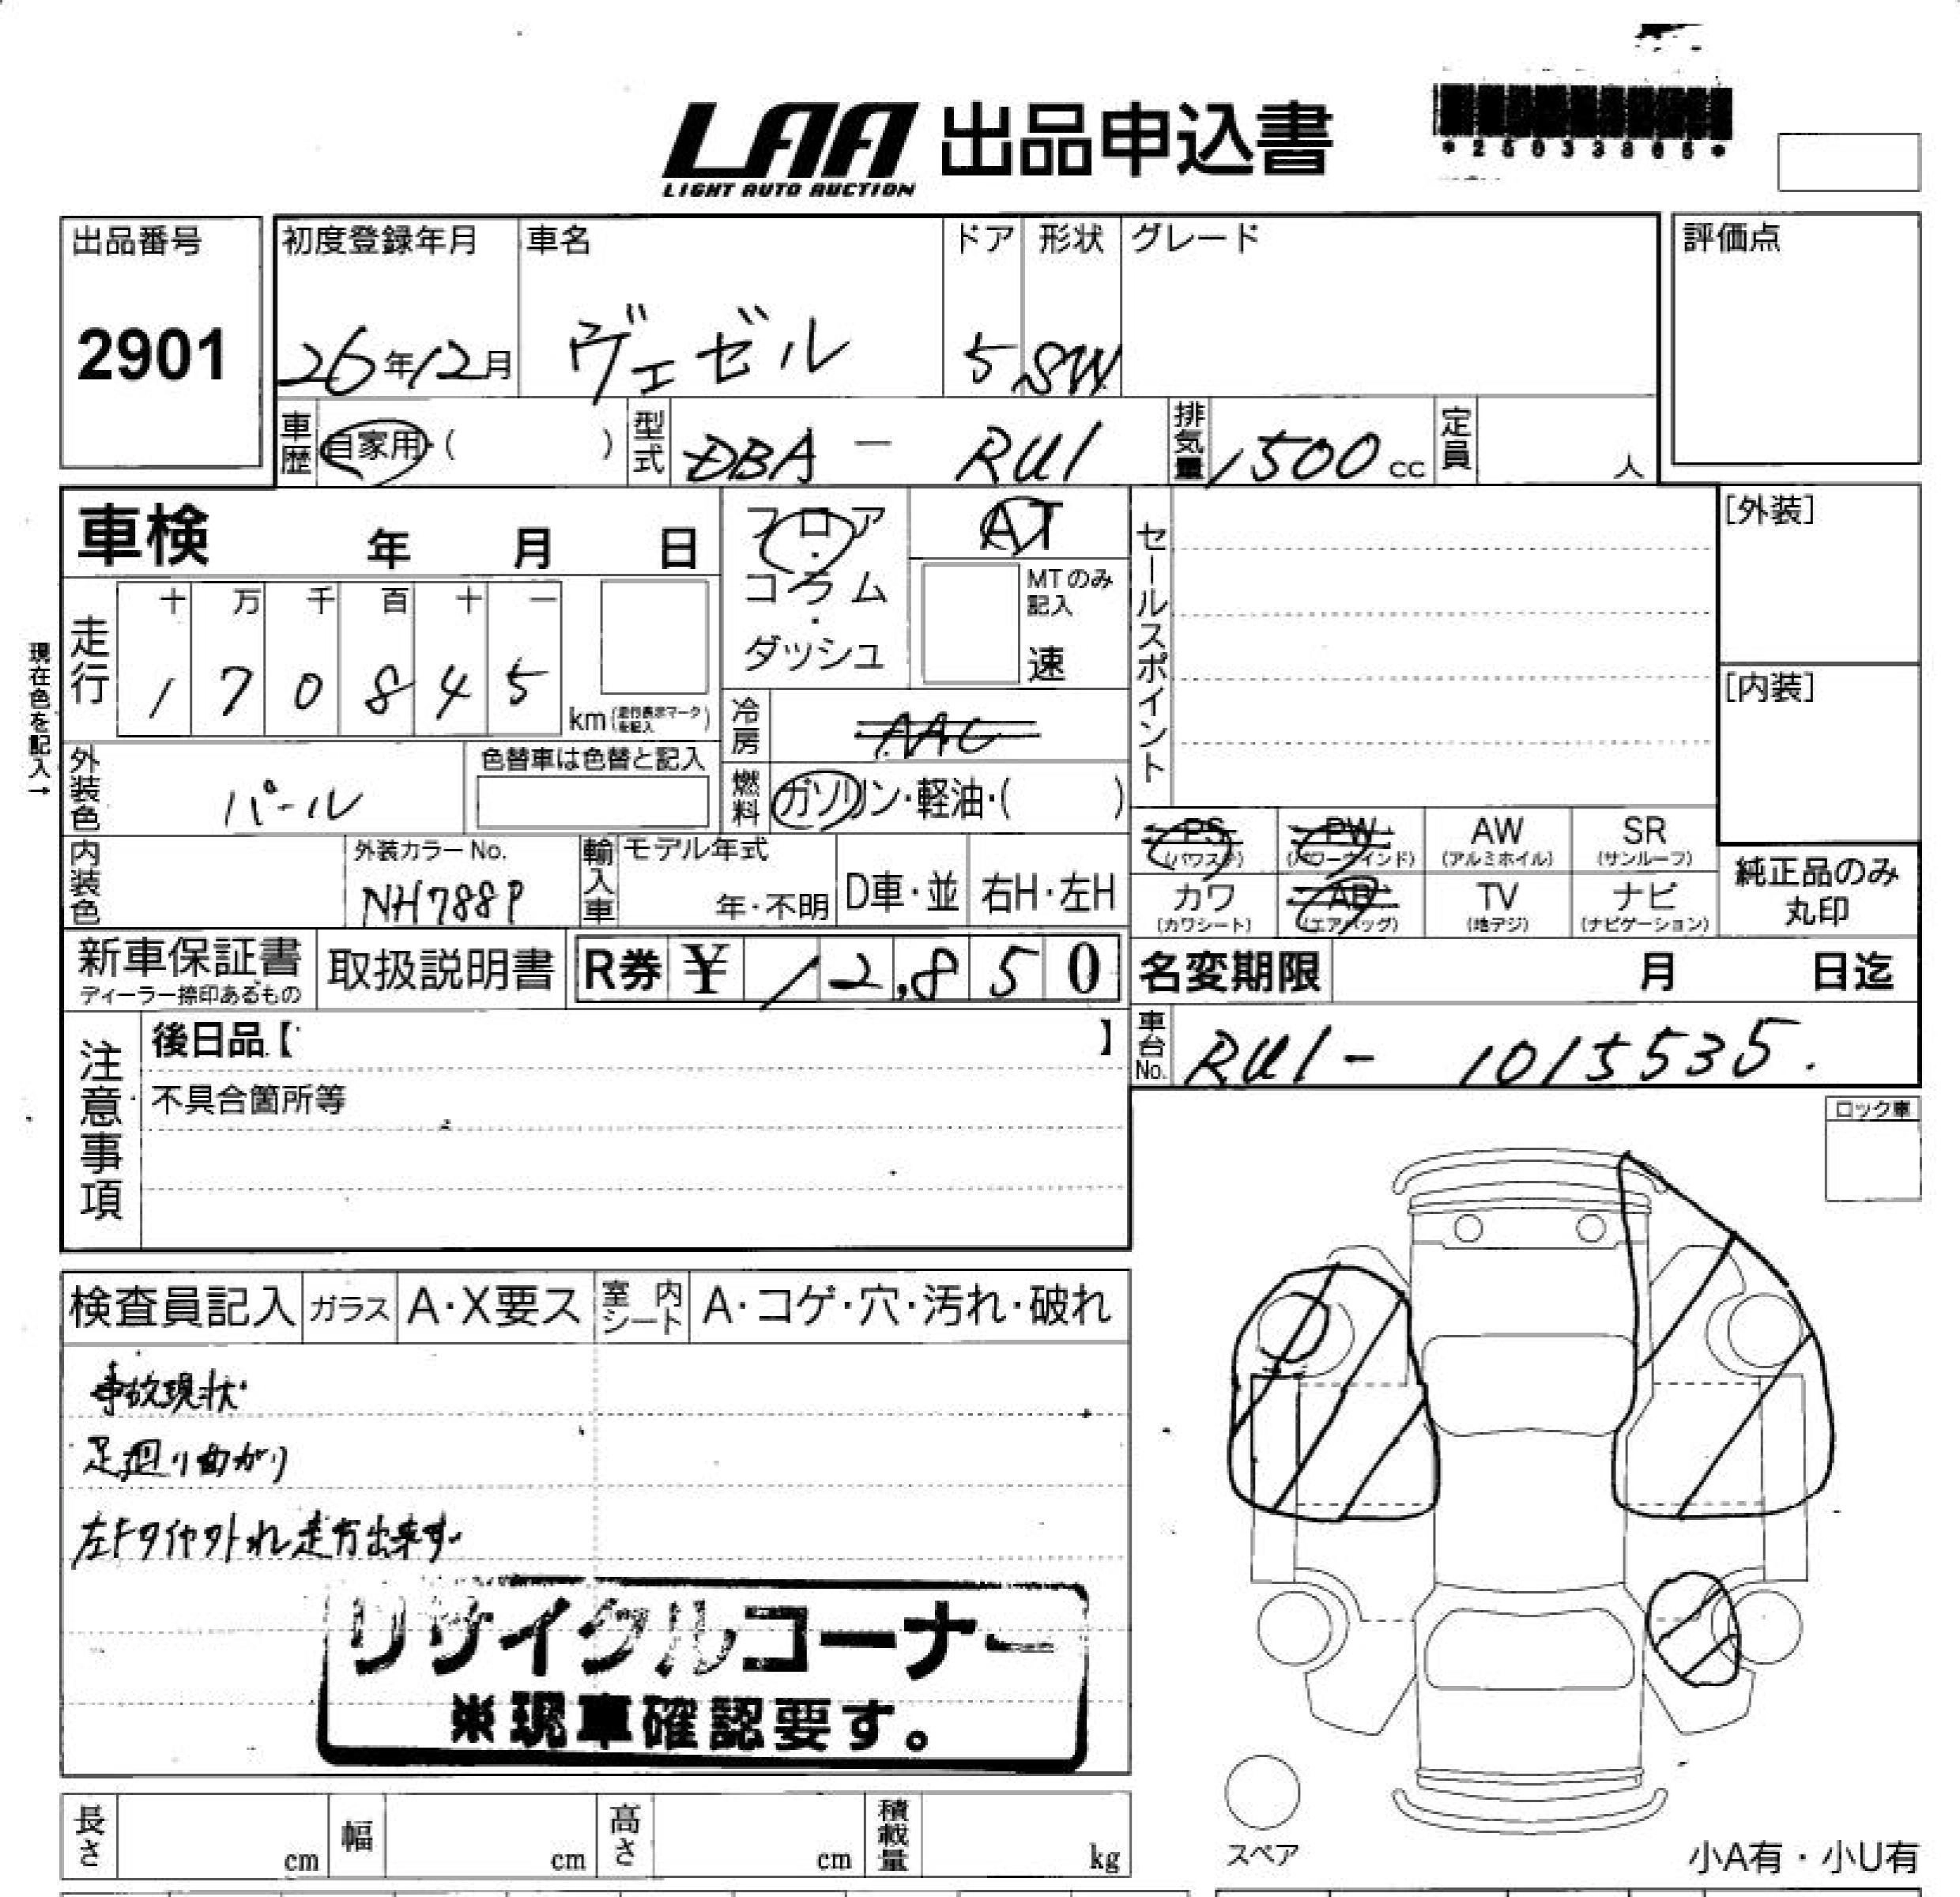 LAA 出品申込書
LIGHT AUTO AUCTION
出品番号
2901
初度登録年月
26年12月
車名
ヴェゼル
ドア
5
形状
SW
グレード
評価点
車歴 自家用・( )
型式 DBA - RU1
排気量 1500cc
定員 人
車検 年 月 日
フロア・コラム・ダッシュ
AT
MTのみ記入
速
セールスポイント
[外装]
[内装]
現在色を記入→
走行
十 万 千 百 十 一
1 7 0 8 4 5
km(走行表示マークを記入)
冷房 AAC
外装色 パール
色替車は色替と記入
燃料 ガソリン・軽油・( )
PS (パワステ)
PW (パワーウインド)
AW (アルミホイル)
SR (サンルーフ)
カワ (カワシート)
AB (エアバッグ)
TV (地デジ)
ナビ (ナビゲーション)
純正品のみ丸印
内装色
外装カラーNo.
NH788P
輸入車
モデル年式
年・不明
D車・並
右H・左H
新車保証書
ディーラー捺印あるもの
取扱説明書
R券 ¥ 12,850
名変期限 月 日迄
車台No. RU1- 1015535.
注意事項
後日品【 】
不具合箇所等
ロック車
検査員記入
ガラス A・X要ス
室内シート A・コゲ・穴・汚れ・破れ
事故現状
足廻り曲がり
左Fタイヤ外れ走行出来ず
リサイクルコーナー
※現車確認要す。
スペア
小A有・小U有
長さ cm
幅 cm
高さ cm
積載量 kg